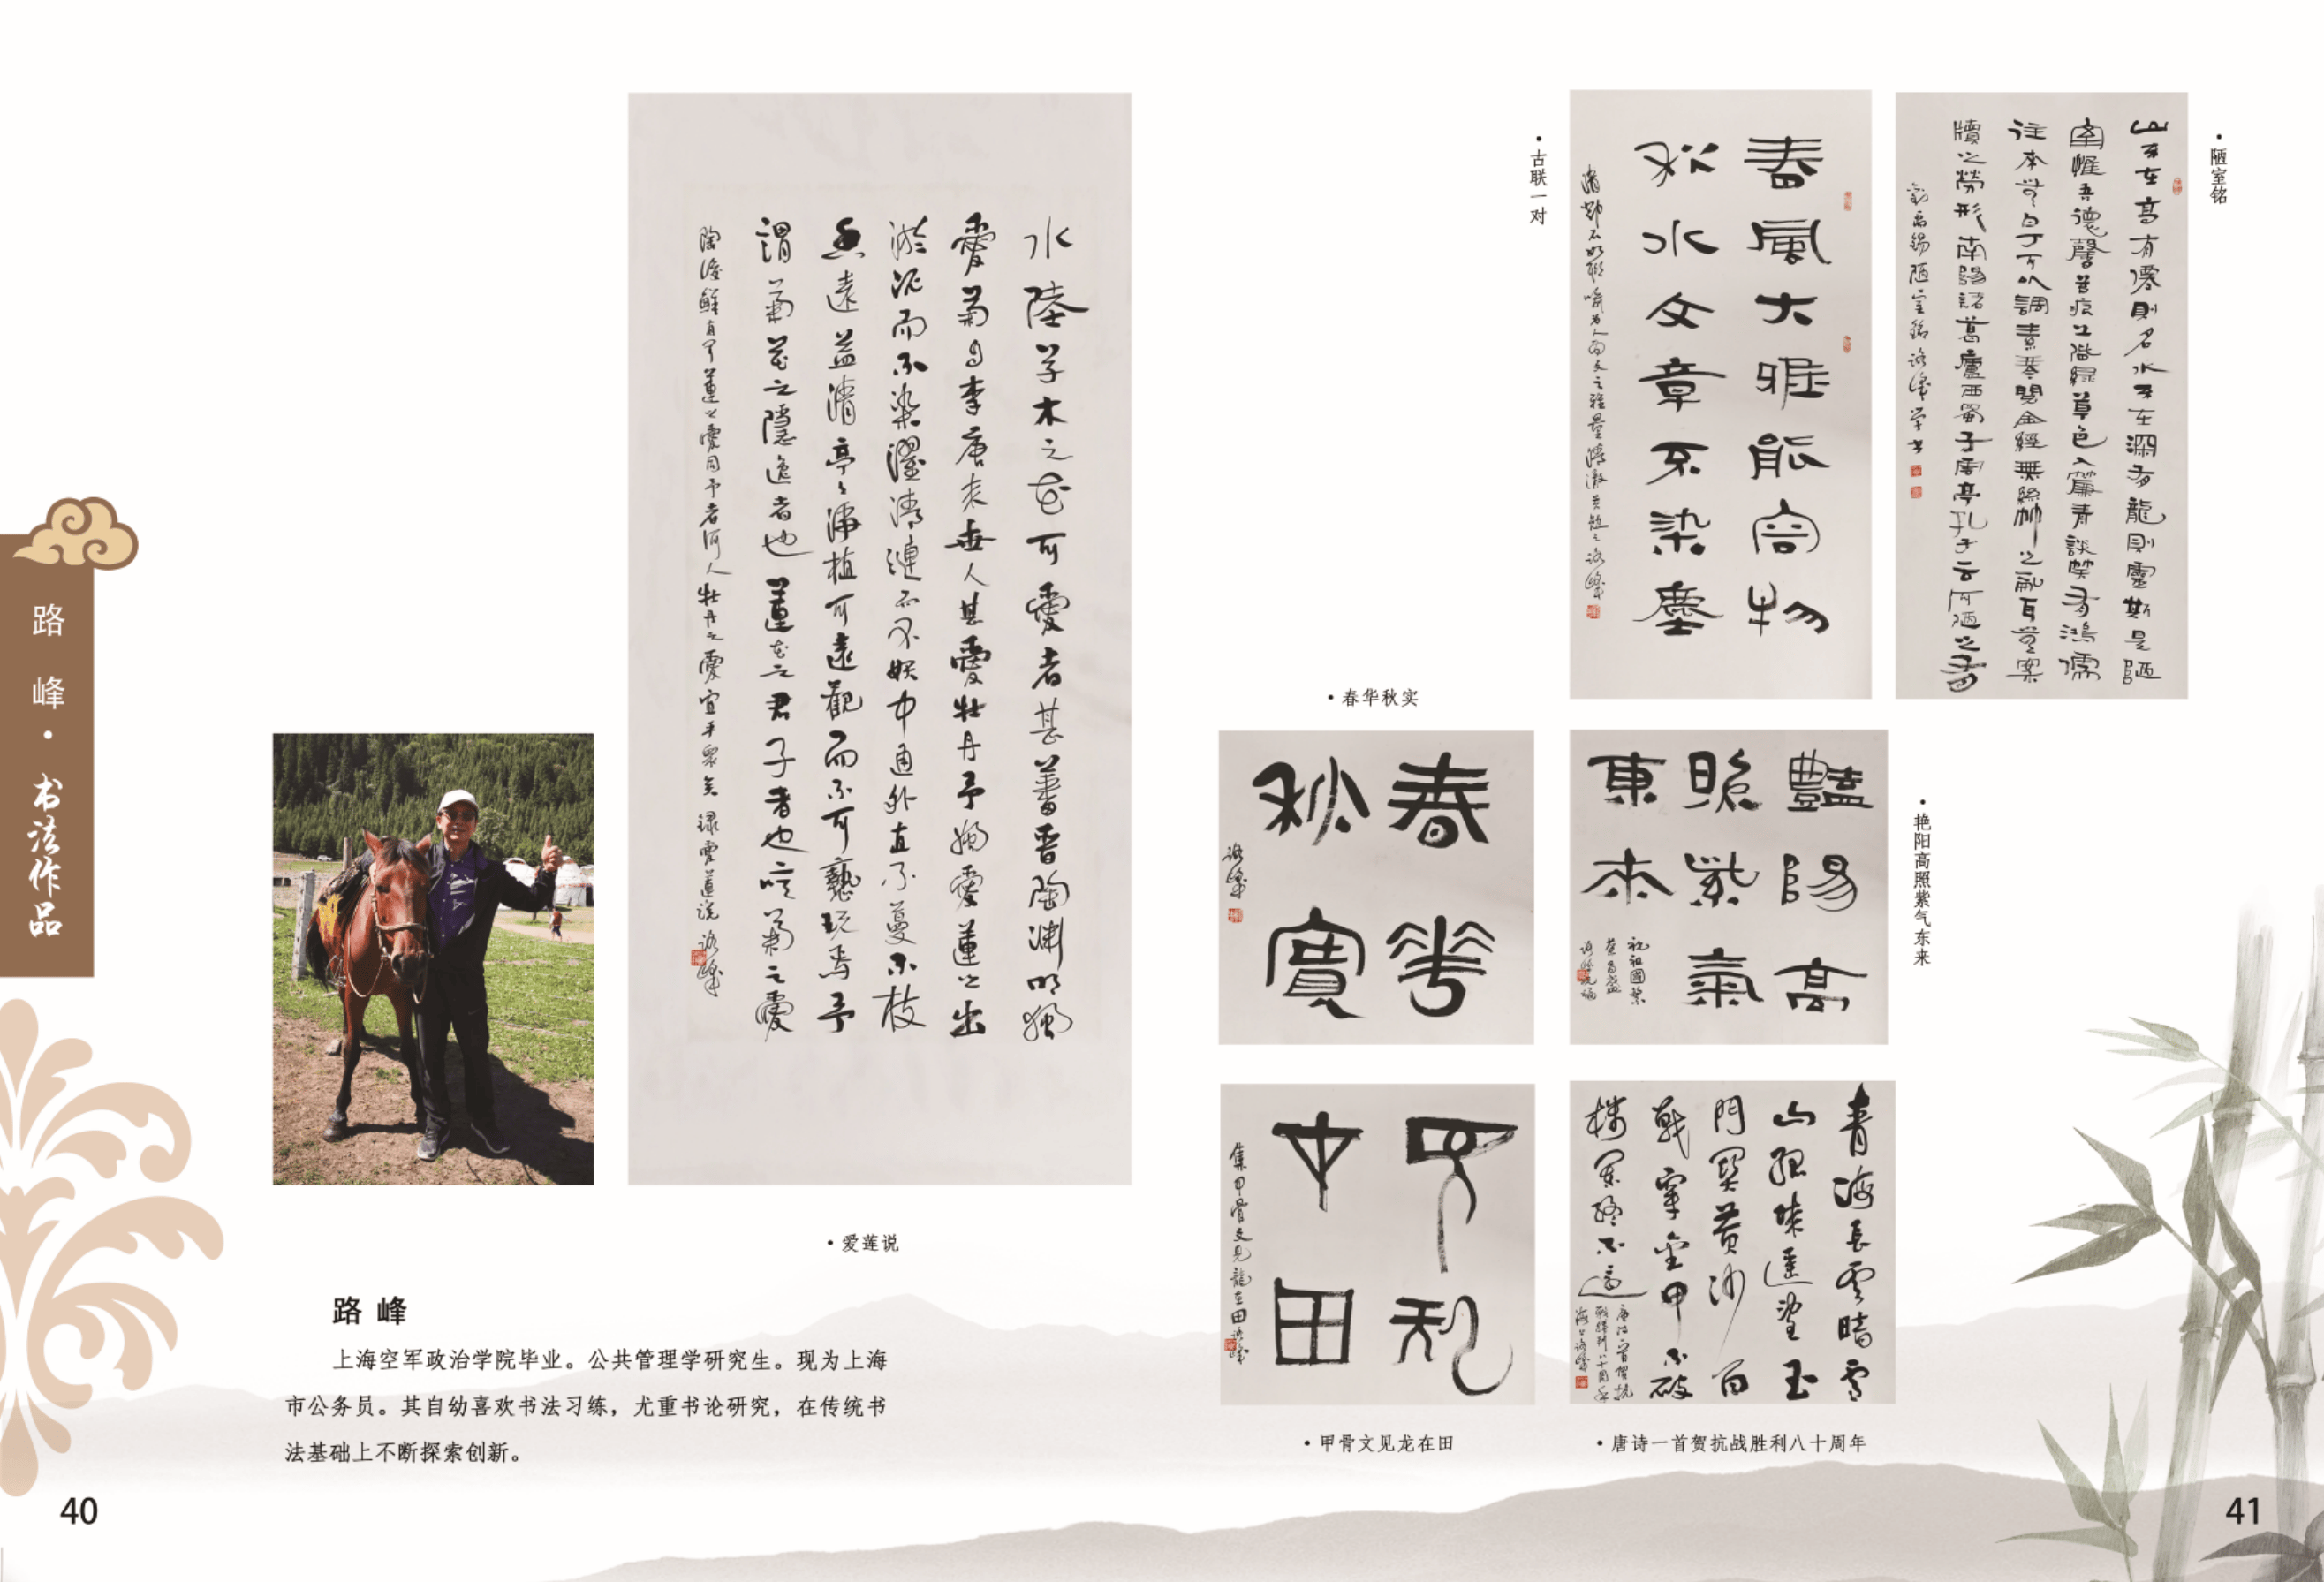 路峰·书法作品
水陆草木之花可爱者甚蕃晋陶渊明独
爱菊自李唐来世人甚爱牡丹予独爱莲之出
淤泥而不染濯清涟而不妖中通外直不蔓不枝
香远益清亭亭净植可远观而不可亵玩焉予
谓菊花之隐逸者也莲花之君子者也噫菊之爱
陶后鲜有闻莲之爱同予者何人牡丹之爱宜乎众矣 录爱莲说 路峰
·爱莲说
路 峰
上海空军政治学院毕业。公共管理学研究生。现为上海
市公务员。其自幼喜欢书法习练，尤重书论研究，在传统书
法基础上不断探索创新。
40
·陋室铭
山不在高有僊則名水不在深有龍則靈斯是陋
室惟吾德馨苔痕上階綠草色入簾青談笑有鴻儒
往来無白丁可以調素琴閱金經無絲竹之亂耳無案
牘之勞形南陽諸葛廬西蜀子雲亭孔子云何陋之有
劉禹錫陋室銘 路峰學書
·古联一对
春風大雅能容物
秋水文章不染塵
·春华秋实
春華
秋實
路峰
·艳阳高照紫气东来
豔陽高
照紫氣
東来
祝祖國繁
榮昌盛
·甲骨文见龙在田
見龍
在田
集甲骨文見龍在田 路峰
青海長雲暗雪
山孤城遥望玉
門關黄沙百
戰穿金甲不破
樓蘭終不還
唐诗一首賀抗
戰勝利八十周年
·唐诗一首贺抗战胜利八十周年
41